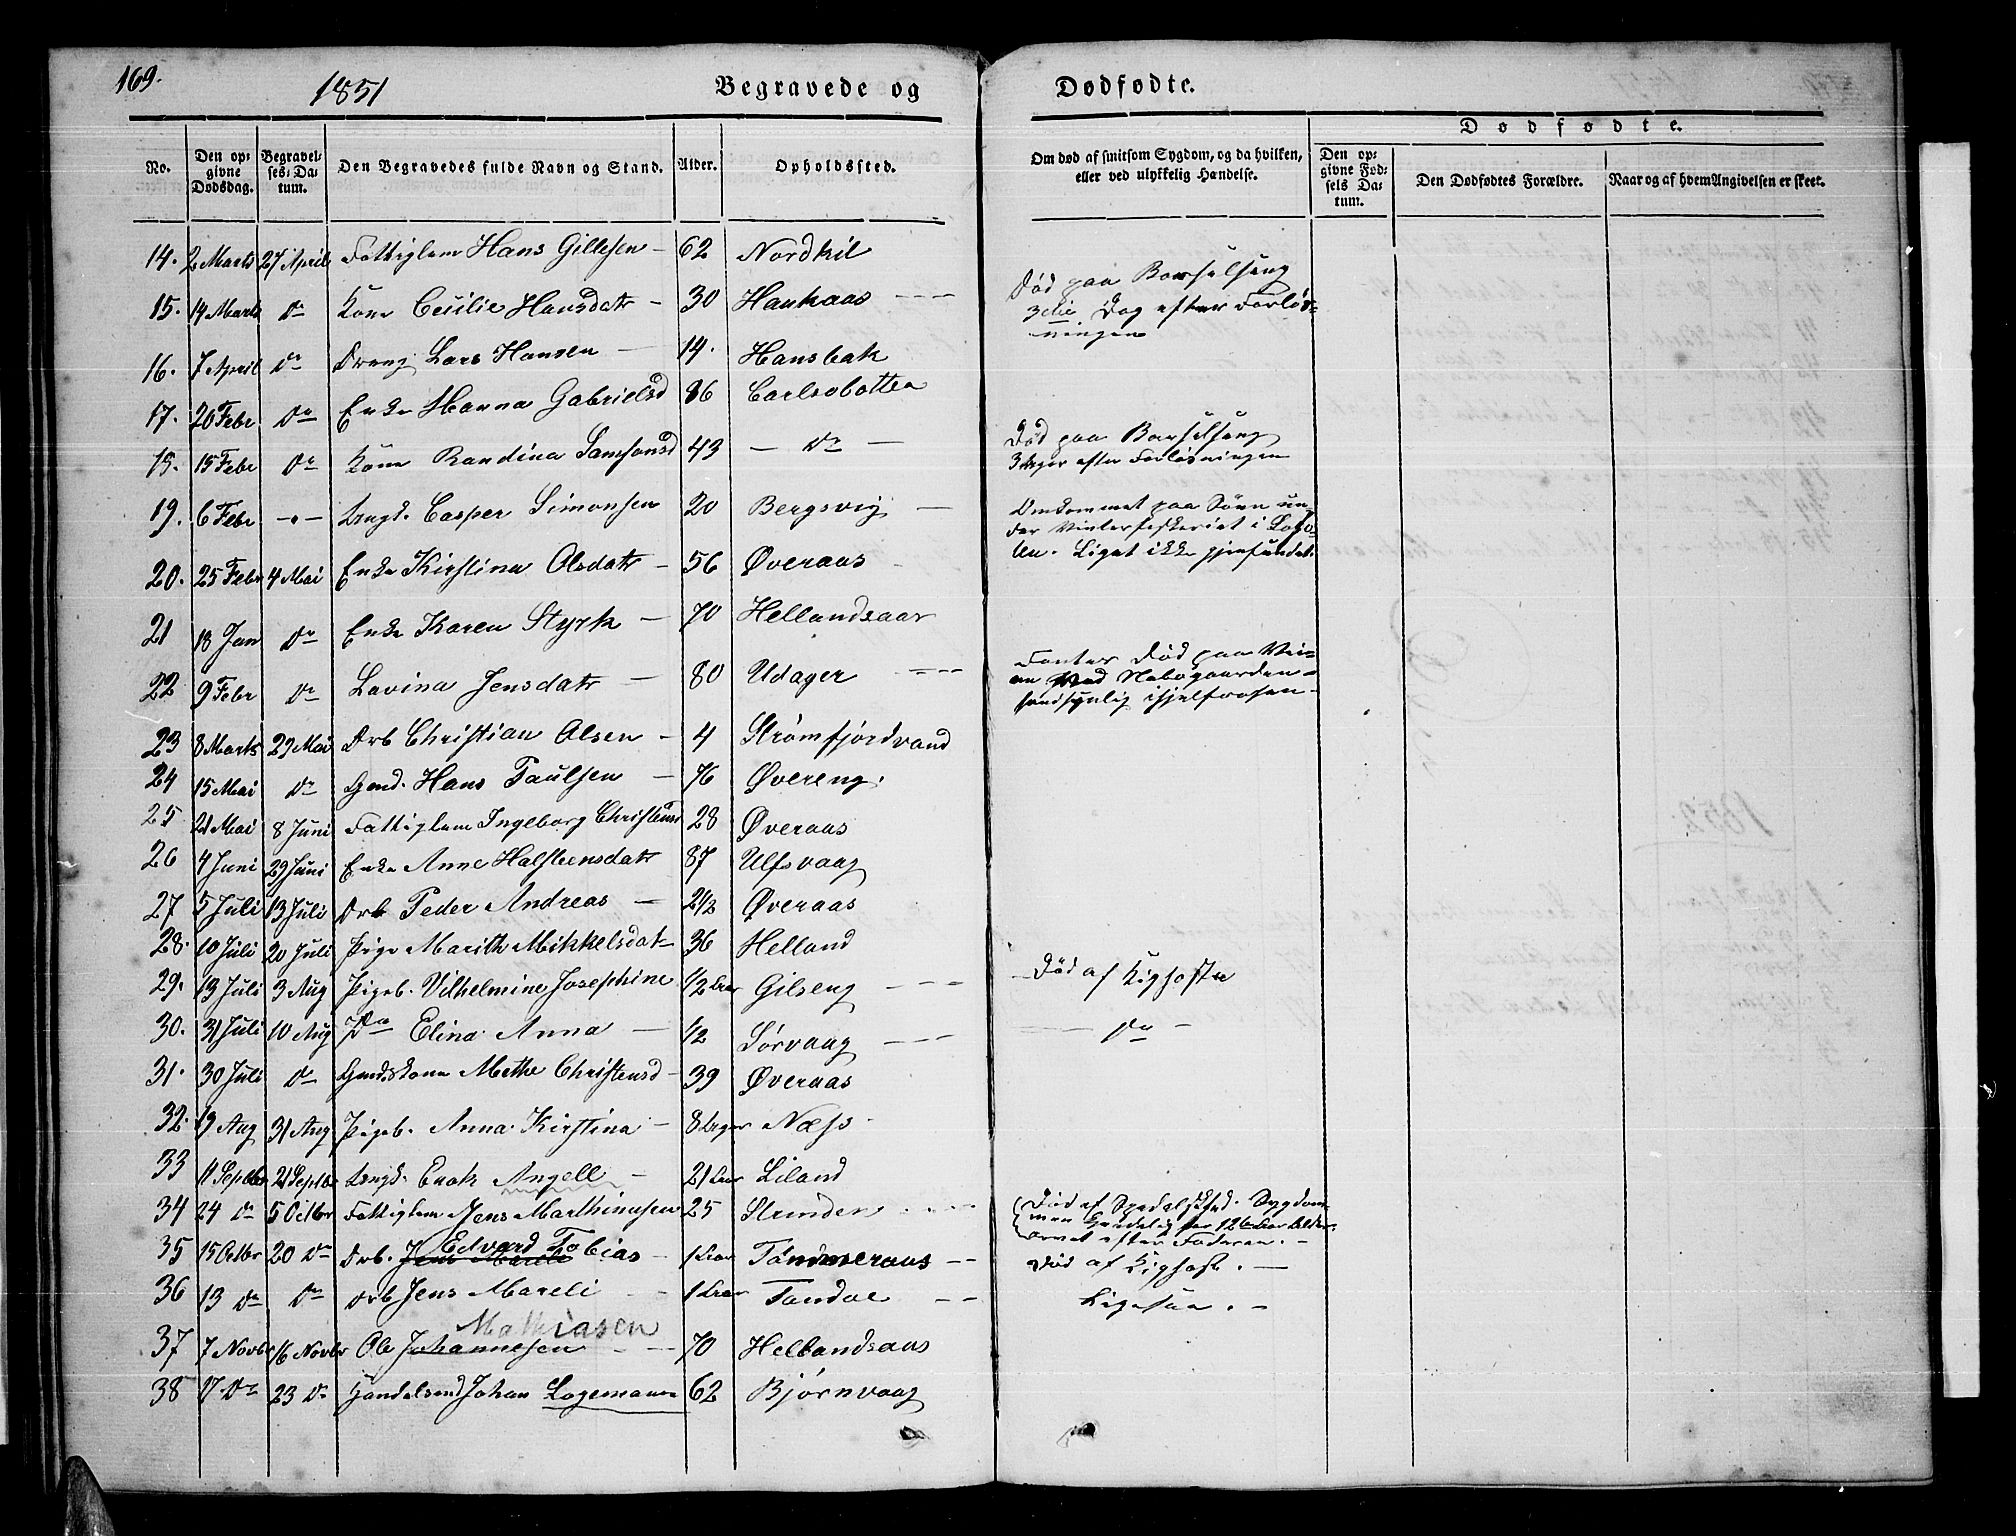 169.
1851
Begravede og Dødfødte.
Dødfødte.
No.
Den opgivne Dødsdag.
Begravelses-Datum.
Den Begravedes fulde Navn og Stand.
Alder.
Opholdssted.
Om død af smitsom Sygdom, og da hvilken, eller ved ulykkelig Hændelse.
Den opgivne Fødsels Datum.
Den Dødfødtes Forældre.
Naar og af hvem Angivelsen er skeet.
14. 2 Marts 27 April Fattiglem Hans Gillesen – 62 Nordkil
15. 14 Marts do Kone Cecilie Hansdatr – 30 Haukaas Død paa Barselseng
3die Dag efter Forløs-
ningen
16. 7 April do Dreng Lars Hansen – 14. Hansbak
17. 20 Febr do Enke Hanna Gabrielsd 86 Carlsobotten
18. 15 Febr do Kone Randina Samsonsd 43 – do – Død paa Barselseng
3 Uger efter Forløsningen
19. 6 Febr – Ungk. Casper Simonsen 20 Bergsvig – Omkommet paa Søen un-
der Vinterfiskeriet i Lofo-
ten. Liget ikke gjenfundet.
20. 25 Febr 4 Mai Enke Kirstina Olsdatr – 56 Øveraas
21 18 Jan do Enke Karen Styrk – 70 Hellandsaar
22 9 Febr do Lavina Jensdatr – 80 Udager Død paa Vei-
en ved Nabogaarden –
sandsynlig ihjelfrosen –
23 8 Marts 29 Mai Drb Christian Olsen – 4 Strømfjordvand
24 15 Mai do Gmd. Hans Paulsen – 76 Øvereng.
25 21 Mai 8 Juni Fattiglem Ingeborg Christensd 28 Øveraas
26 4 Juni 29 Juni Enke Anne Halsteensdatr 87 Ulfsvaag
27 5 Juli 13 Juli Drb Peder Andreas – 2 1/2 Øveraas
28. 10 Juli 20 Juli Pige Marith Mikkelsdat 36 Helland
29. 13 Juli 3 Aug Pigeb. Vilhelmine Josephine 1/2 Aar Gilseng – Død af Kighoste
30. 31 Juli 10 Aug Do Elina Anna – 1/2 Sørvaag – do –
31. 30 Juli do Gmdskone Methe Christensd – 39 Øveraas
32. 19 Aug 31 Aug Pigeb. Anna Kirstina – 8 Uger Næss.
33 11 Septbr 21 Septbr Ungk. Enok Angell – 21 Aar Liland
34 24 do 5 Octbr Fattiglem Jens Marthinusen 25 Strinden Død af Spedalskhed. Sygdom-
men 12te Aars Alder.
arvet efter Faderen. –
35 15 Octbr 20 do Drb. Edvard Tobias – 1 Aar Tømmeraas – Død af Kighost. –
36 13 do do Drb Jens Mareli 1 Aar Tandoe – Ligesaa. –
Mathiasen
37 7 Novbr 16 Novbr Ole Johannesen – 70 Hellandsaas
38 17 do 23 do Handelsmd Johan Logemann 62 Bjørnvaag
1852.